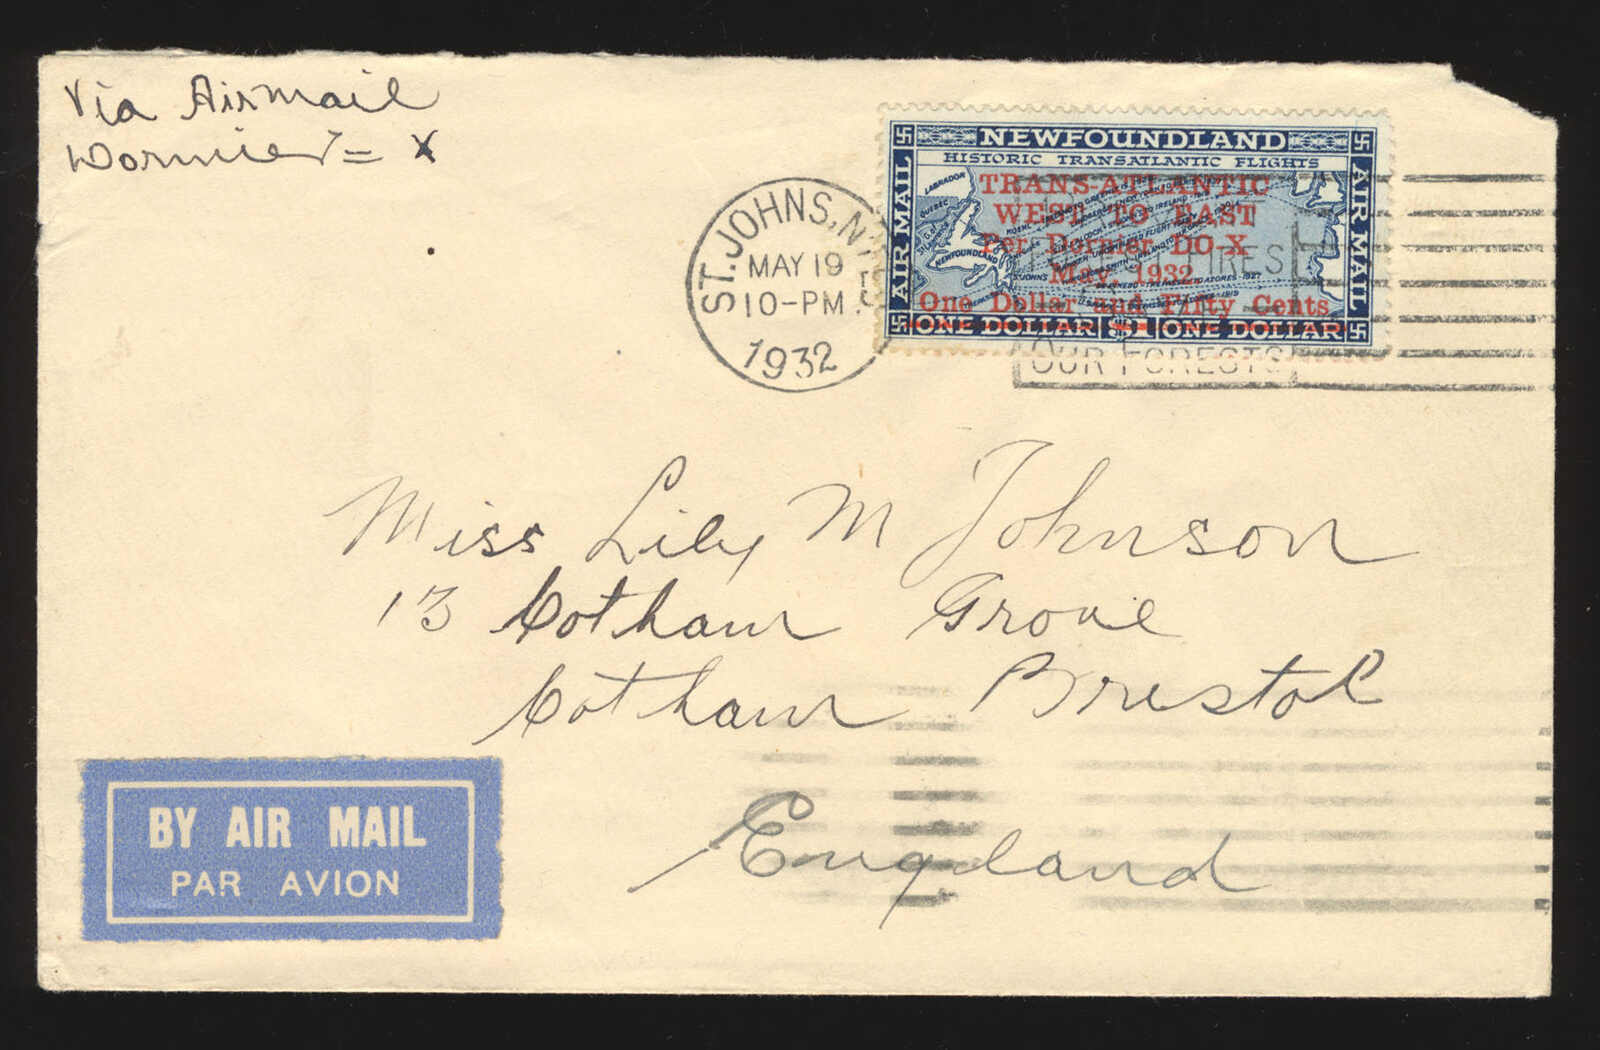 Via Airmail
Dornier = X
ST. JOHNS, N
MAY 19
10-PM
1932
NEWFOUNDLAND
HISTORIC TRANSATLANTIC FLIGHTS
AIR MAIL
AIR MAIL
LABRADOR
QUEBEC
NEWFOUNDLAND
TRANS-ATLANTIC
WEST TO EAST
Per Dornier DO-X
May, 1932
One Dollar and Fifty Cents
ONE DOLLAR $1 ONE DOLLAR
OUR FORESTS
Miss Lily M Johnson
13 Cotham Grove
Cotham Bristol
England
BY AIR MAIL
PAR AVION